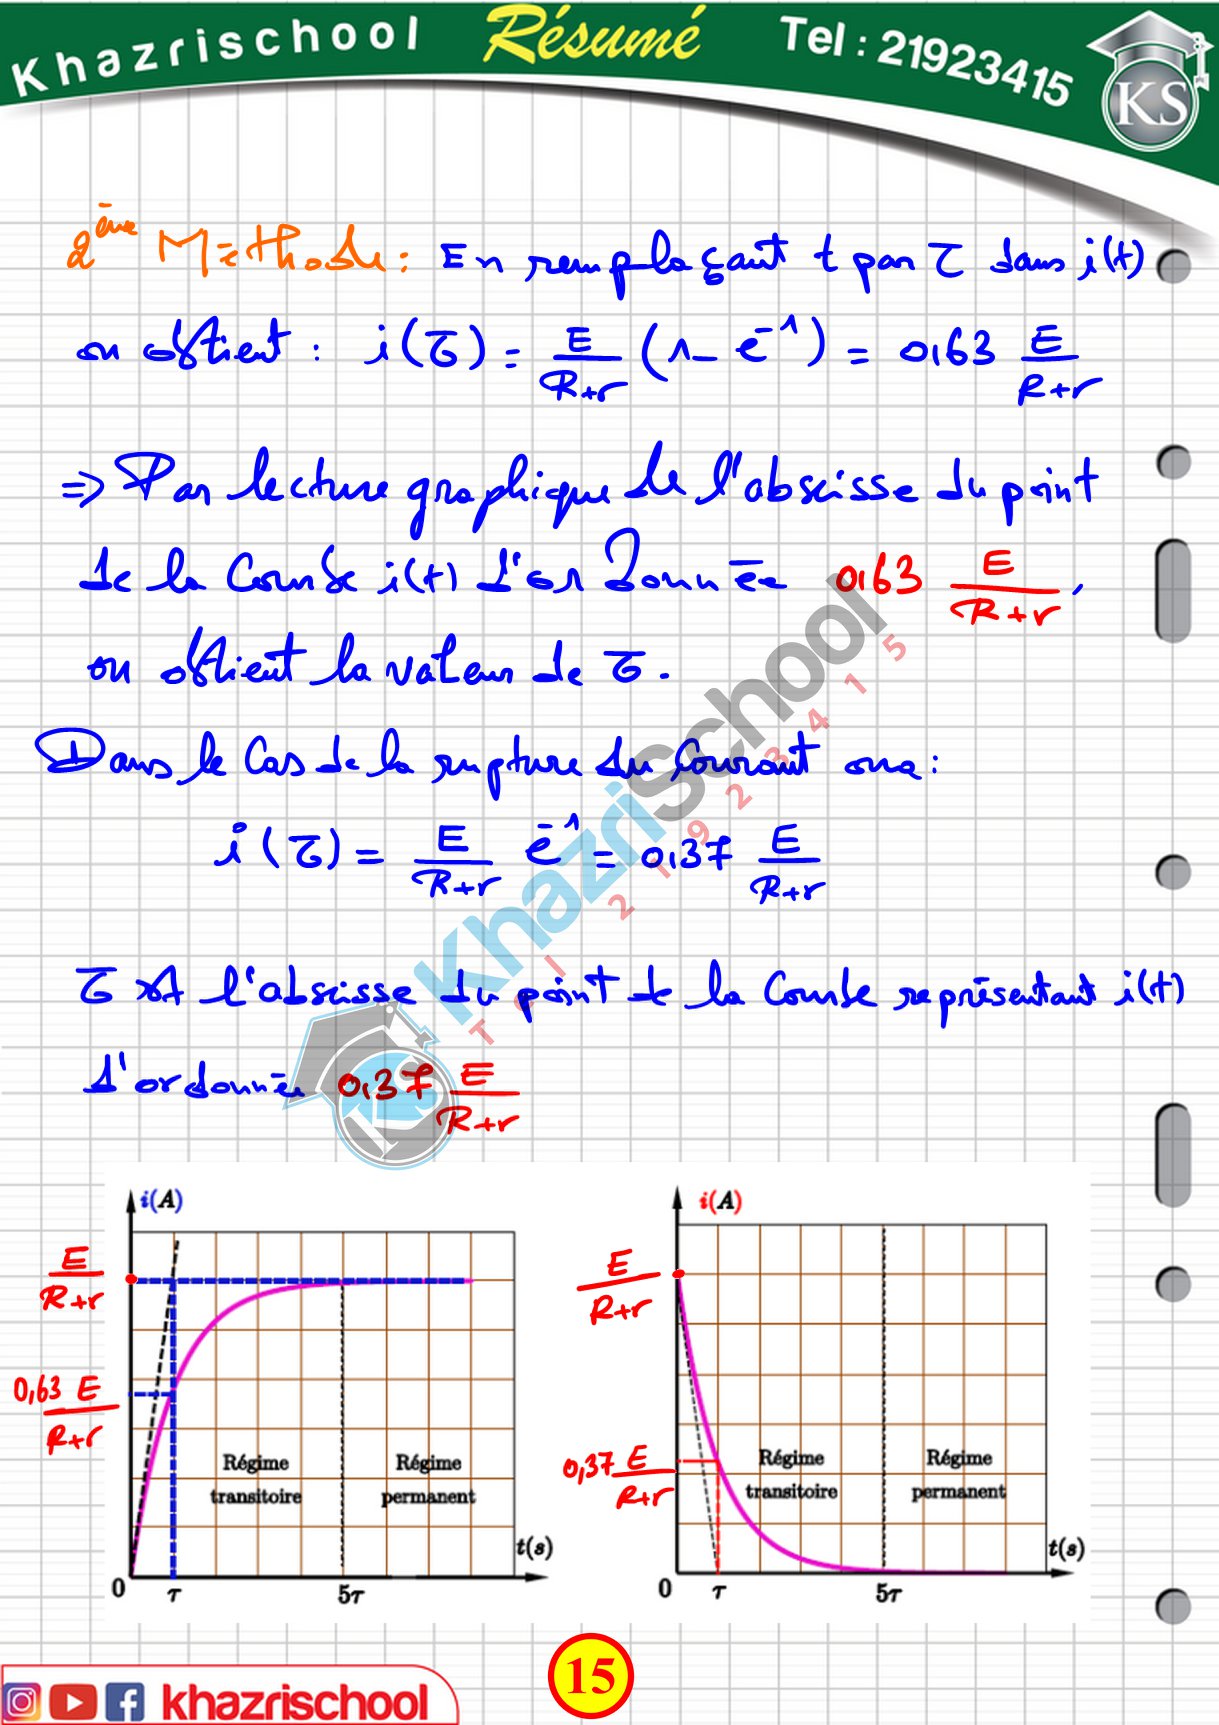 Khazrischool Résumé Tel : 21923415
KS
2ème Méthode : En remplaçant t par τ dans i(t)
on obtient : i(τ) = E/(R+r) (1 - e⁻¹) = 0,63 E/(R+r)
⇒ Par lecture graphique de l'abscisse du point
de la Courbe i(t) d'ordonnée 0,63 E/(R+r),
on obtient la valeur de τ.
Dans le Cas de la rupture du Courant on a :
i(τ) = E/(R+r) e⁻¹ = 0,37 E/(R+r)
τ est l'abscisse du point de la Courbe représentant i(t)
d'ordonnée 0,37 E/(R+r)
KhazriSchool
Tel 21923415
KS
i(A)
E/(R+r)
0,63 E/(R+r)
Régime transitoire
Régime permanent
t(s)
0 τ 5τ
i(A)
E/(R+r)
0,37 E/(R+r)
Régime transitoire
Régime permanent
t(s)
0 τ 5τ
15
khazrischool